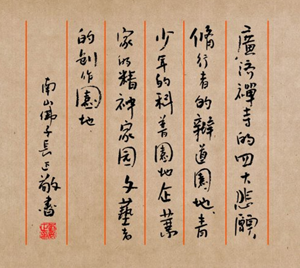 廣濟禪寺的四大悲願
脩行者的辦道園地、青
少年的科普園地企業
家的精神家园文藝者
的創作園地
南山佛子長正敬書